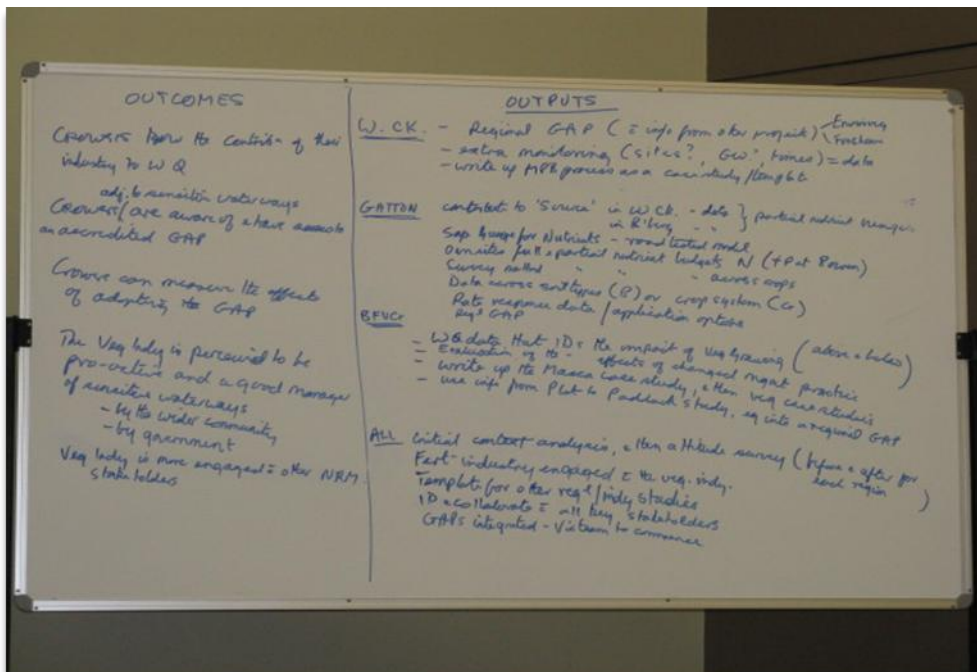 OUTCOMES
Growers know the contribution of their
industry to WQ
adj. to sensitive waterways
Growers/are aware of & have access to
an accredited GAP
Growers can measure the effects
of adopting the GAP
The Veg Indy is perceived to be
pro-active and a good manager
of sensitive waterways
- by the wider community
- by government
Veg Indy is more engaged = other NRM
stakeholders
OUTPUTS
W. CK. - Regional GAP (= info from other project)
- extra monitoring (sites?, GW?, times) = data
- write up process as a case study/template
GATTON contribute to 'Source' in W CK. - data } partial nutrient budgets
in " "
Sap for Nutrients - road tested model
full & partial nutrient budgets N (+P at
Survey " " " across crops
Data across soil types (B) or crop system (G)
Rate response data / application options
Reg'l GAP
BFVG
- WQ data that ID's the impact of veg growing (above & below)
- Evaluation of the - effects of changed mgmt practice
- write up the case study, & then veg case studies
- use info from Plot to Paddock study, eg into a regional GAP
ALL Initial context analysis, & then attitude survey (before & after for
each region)
Fert industry engaged = the veg. indy.
Template for other reg'l/indy studies
ID & collaborate = all key stakeholders
GAPs integrated -